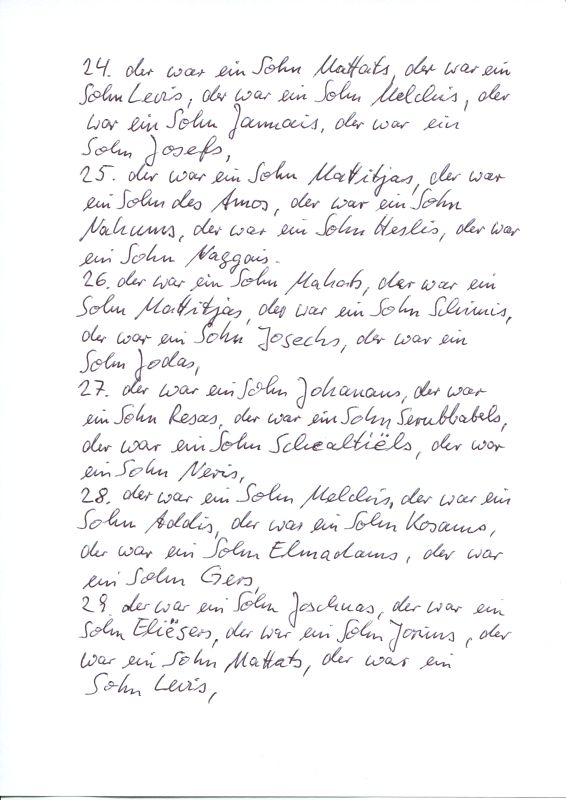 24. der war ein Sohn Mattats, der war ein
Sohn Levis, der war ein Sohn Melchis, der
war ein Sohn Jannais, der war ein
Sohn Josefs,
25. der war ein Sohn Mattitjas, der war
ein Sohn des Amos, der war ein Sohn
Nahums, der war ein Sohn Heslis, der war
ein Sohn Naggais.
26. der war ein Sohn Mahats, der war ein
Sohn Mattitjas, der war ein Sohn Schimis,
der war ein Sohn Josechs, der war ein
Sohn Jodas,
27. der war ein Sohn Johanans, der war
ein Sohn Resas, der war ein Sohn Serubbabels,
der war ein Sohn Schealtiëls, der war
ein Sohn Neris,
28. der war ein Sohn Melchis, der war ein
Sohn Addis, der war ein Sohn Kosams,
der war ein Sohn Elmadams, der war
ein Sohn Gers,
29. der war ein Sohn Joschuas, der war ein
Sohn Eliësers, der war ein Sohn Jorims, der
war ein Sohn Mattats, der war ein
Sohn Levis,